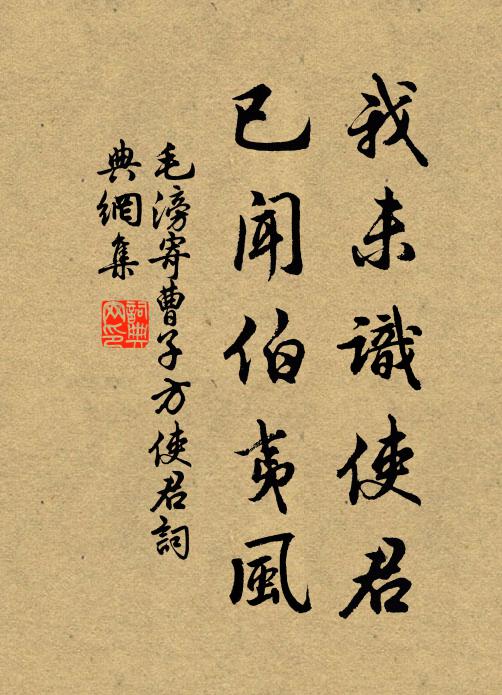 我未識使君
已聞伯夷風
毛滂寄曹子方使君詞
典網集
詞典
网印